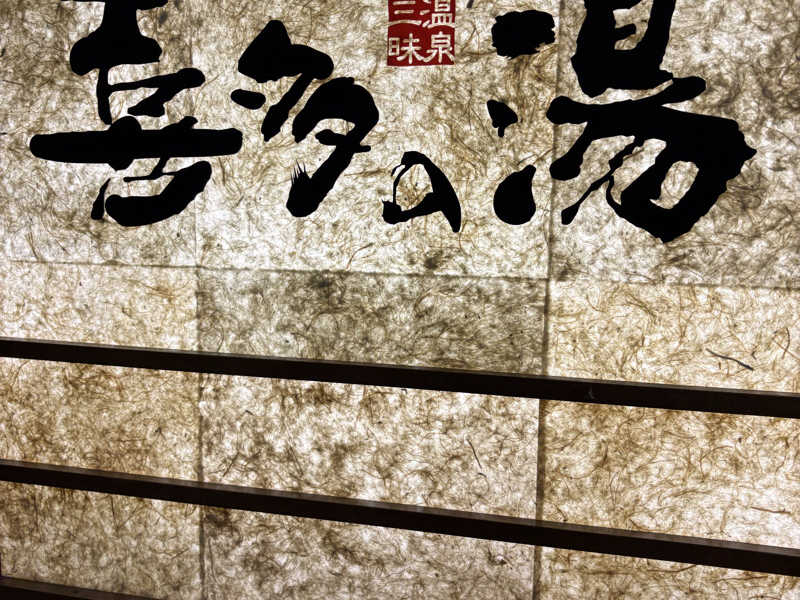 温泉
三昧
喜多の湯